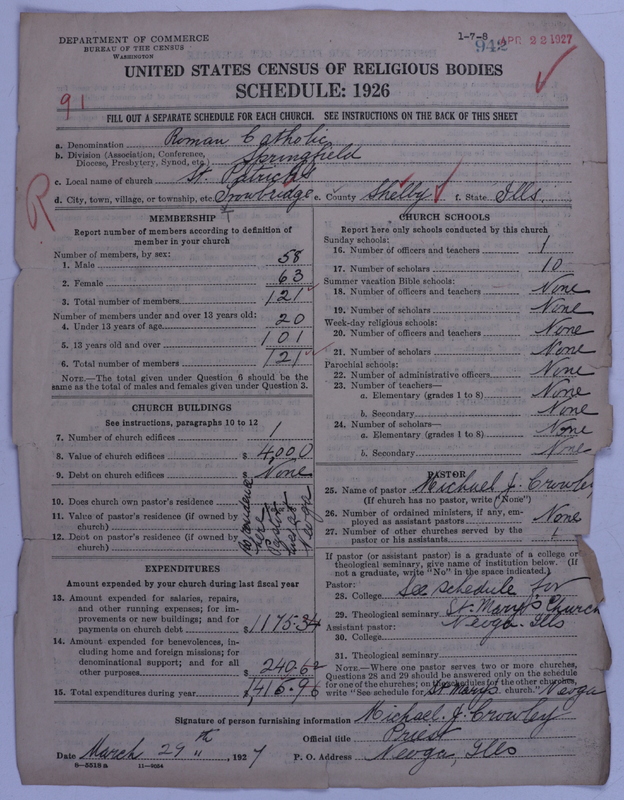 DEPARTMENT OF COMMERCE
BUREAU OF THE CENSUS
WASHINGTON
1-7-8
942 APR 22 1927
UNITED STATES CENSUS OF RELIGIOUS BODIES
SCHEDULE: 1926
91
FILL OUT A SEPARATE SCHEDULE FOR EACH CHURCH. SEE INSTRUCTIONS ON THE BACK OF THIS SHEET
a. Denomination Roman Catholic
b. Division (Association, Conference, Diocese, Presbytery, Synod, etc.) Springfield
c. Local name of church St. Patricks
R
d. City, town, village, or township, etc. Trowbridge e. County Shelby f. State Ills.
MEMBERSHIP
Report number of members according to definition of member in your church
Number of members, by sex:
1. Male 58
2. Female 63
3. Total number of members 121
Number of members under and over 13 years old:
4. Under 13 years of age 20
5. 13 years old and over 101
6. Total number of members 121
NOTE.—The total given under Question 6 should be the same as the total of males and females given under Question 3.
CHURCH BUILDINGS
See instructions, paragraphs 10 to 12
7. Number of church edifices 1
8. Value of church edifices $ 4,000
9. Debt on church edifices $ None
10. Does church own pastor's residence
11. Value of pastor's residence (if owned by church)
12. Debt on pastor's residence (if owned by church)
No residence here Pastor lives at Neoga
EXPENDITURES
Amount expended by your church during last fiscal year
13. Amount expended for salaries, repairs, and other running expenses; for improvements or new buildings; and for payments on church debt $ 1175.34
14. Amount expended for benevolences, including home and foreign missions; for denominational support; and for all other purposes $ 240.62
15. Total expenditures during year $ 1416.96
CHURCH SCHOOLS
Report here only schools conducted by this church
Sunday schools:
16. Number of officers and teachers 1
17. Number of scholars 10
Summer vacation Bible schools:
18. Number of officers and teachers None
19. Number of scholars None
Week-day religious schools:
20. Number of officers and teachers None
21. Number of scholars None
Parochial schools:
22. Number of administrative officers None
23. Number of teachers—
a. Elementary (grades 1 to 8) None
b. Secondary None
24. Number of scholars—
a. Elementary (grades 1 to 8) None
b. Secondary None
PASTOR
25. Name of pastor Michael J. Crowley
(If church has no pastor, write "None")
26. Number of ordained ministers, if any, employed as assistant pastors None
27. Number of other churches served by the pastor or his assistants 1
If pastor (or assistant pastor) is a graduate of a college or theological seminary, give name of institution below. (If not a graduate, write "No" in the space indicated.)
Pastor:
28. College See schedule for
29. Theological seminary St. Mary's Church
Assistant pastor: Neoga. Ills
30. College
31. Theological seminary
NOTE.—Where one pastor serves two or more churches, Questions 28 and 29 should be answered only on the schedule for one of the churches; on the schedules for the other churches, write "See schedule for St. Marys church." Neoga
Signature of person furnishing information Michael. J. Crowley
Official title Priest
Date March 29th, 1927 P. O. Address Neoga, Ills
8-5518a 11-9054